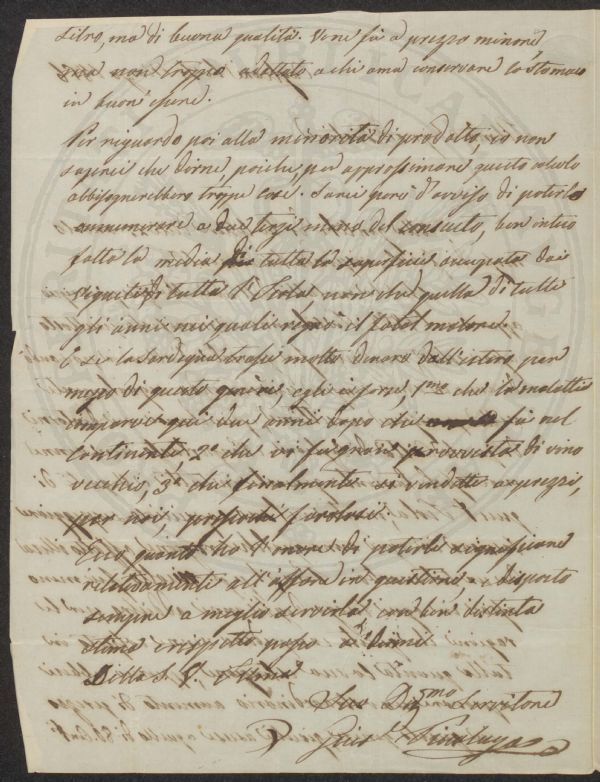 litro, ma di buona qualità. Vene fu a prezzo minore
ma non troppo adattato a chi ama conservare lo stomaco
in buon' essere.
Per riguardo poi alla minorità di prodotto io non
saprei che dirne, poiche, per approssimare questo calcolo
abbisognerebbero troppe cose. Sarei però d'avviso di poterlo
annumerare a due terzi meno del consueto, ben inteso
fatta la media di tutta la superficie occupata dai
vigneti di tutta l'Isola non che quella di tutti
gli anni nei quali regnò il fatal malore.
E se la Sardegna trasse molto denaro dall'estero per
mezzo di questo genere, egli è forse, 1mo che la malattia
comparve qui due anni dopo che fu nel
continente 2° che vi fu provvista di vino
vecchio, 3° che finalmente si vendette a prezzi,
per noi favolosi.
Ecco quanto ho l'onore di poterle significare
relativamente all'affare in questione, e disposto
sempre a meglio servirla con ben distinta
stima e rispetto godo a dirmi
Della S. V. Illma
Suo Devmo Servitore